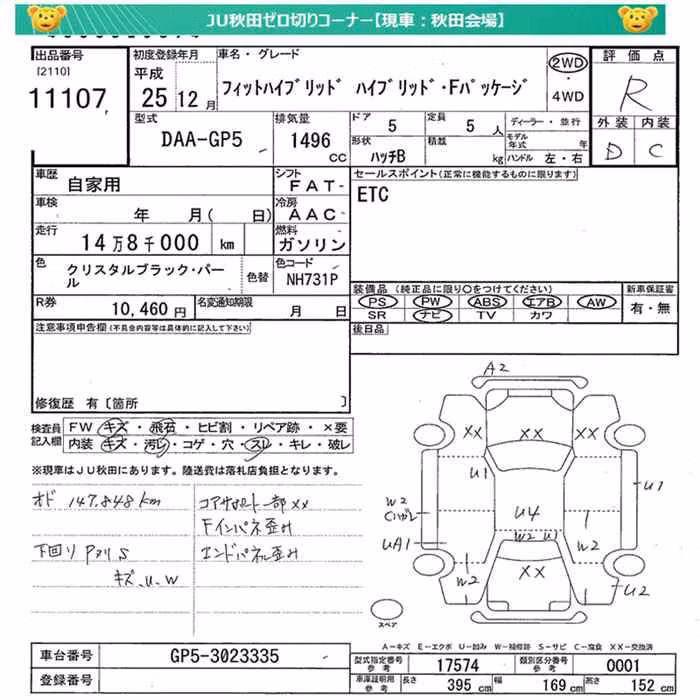 JU秋田ゼロ切りコーナー【現車：秋田会場】
出品番号 初度登録年月 車名・グレード 評価点
[2110] 平成 2WD
11107 25 12月 フィットハイブリッド ハイブリッド・Fパッケージ ・ R
4WD
型式 排気量 ドア 5 定員 5 人 ディーラー・並行 外装 内装
DAA-GP5 1496 CC 形状 ハッチB 積載 kg モデル年式 年 D C
ハンドル 左・右
車歴 自家用 シフト FAT- セールスポイント(正常に機能するものに限ります)
車検 年 月( 日) 冷房 AAC- ETC
走行 14万8千000 km 燃料 ガソリン
色 クリスタルブラック・パール 色替 色コード NH731P
装備品 (純正品に限り○をつけてください) 新車保証書
PS PW ABS エアB AW 有・無
SR ナビ TV カワ
R券 10,460円 名変通知期限 月 日 後日品
注意事項申告欄(不具合内容等は具体的に記入して下さい)
修復歴 有〔箇所 〕
検査員記入欄 FW キズ・飛石・ヒビ割・リペア跡・×要
内装 キズ・汚レ・コゲ・穴・スレ・キレ・破レ
※現車はJU秋田にあります。陸送費は落札店負担となります。
オド 147,848km コアサポート一部XX
Fインパネ歪み
下回り Pヌリ S エンドパネル歪み
キズ、U、W
A2
XX XX XX
U1 U1
W2
U4
UA1 W2 U W2
W2 XX U2
スペア
A-キズ E-エクボ U-凹み W-補修跡 S-サビ C-腐食 XX-交換済
車台番号 GP5-3023335
登録番号
型式指定番号参考 17574 類別区分番号参考 0001
車庫証明用参考 長さ 395 cm 幅 169 cm 高さ 152 cm